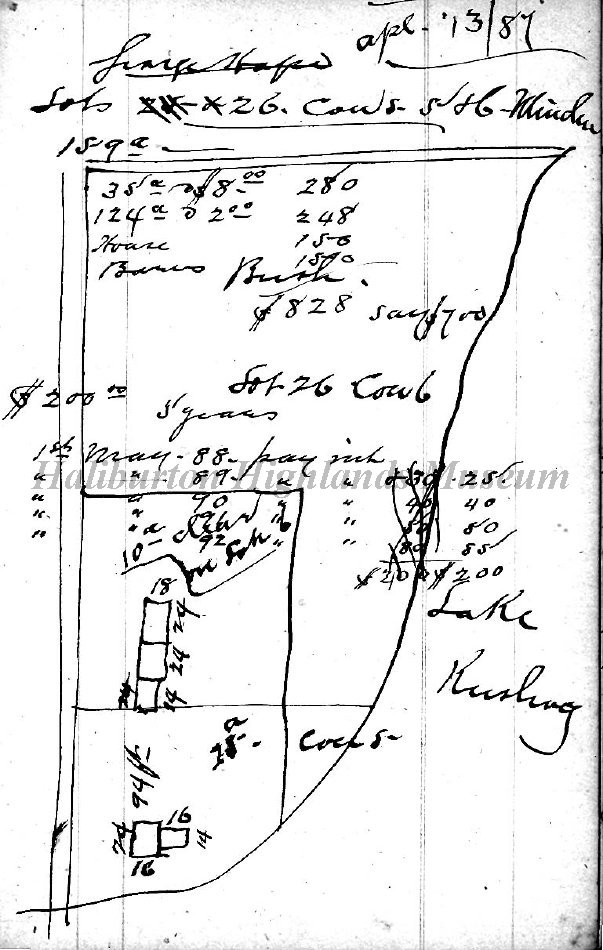 apl. 13/87
George Hope
Lots 26. Con 5 & 6 Minden
159a
35a @ $8.00 280
124a @ 2.00 248
House 150
Barns 150
Bush.
$828 say $700
Lot 26 Con 6
$200.00
5 years
1st May - 88 - pay int
Haliburton Highlands Museum
" " 89 " " 30 25
" " 90 " " 40 40
" " 91 " " 50 50
" " 92 " " 80 85
$200 $200
10a clear
on Lot
18
24
24
24 14
Lake
Kushog
Con 5
94 ft
24 16 14
16